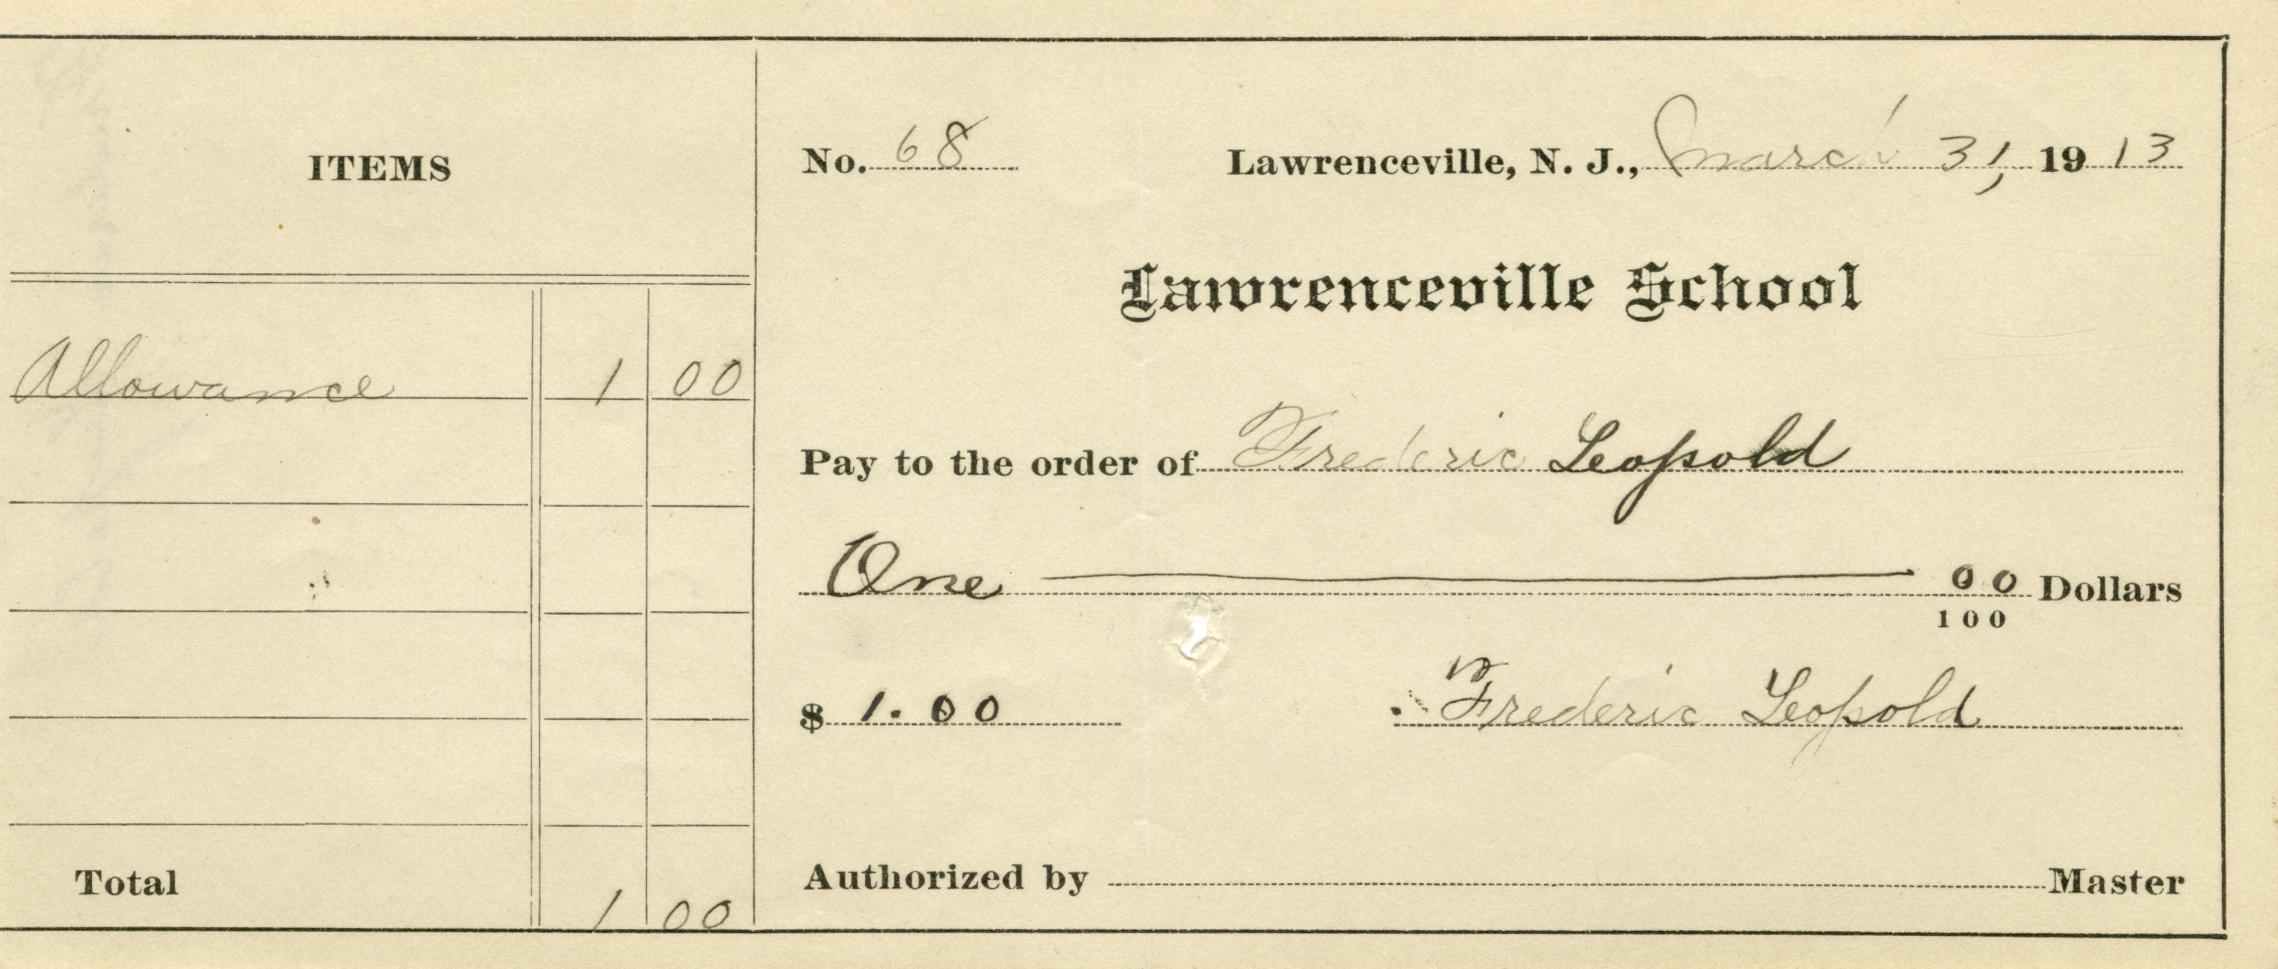 ITEMS
Allowance 1 00
Total 1 00
No. 68 Lawrenceville, N. J., March 31, 1913
Lawrenceville School
Pay to the order of Frederic Leopold
One 00 Dollars
100
$ 1.00 Frederic Leopold
Authorized by Master